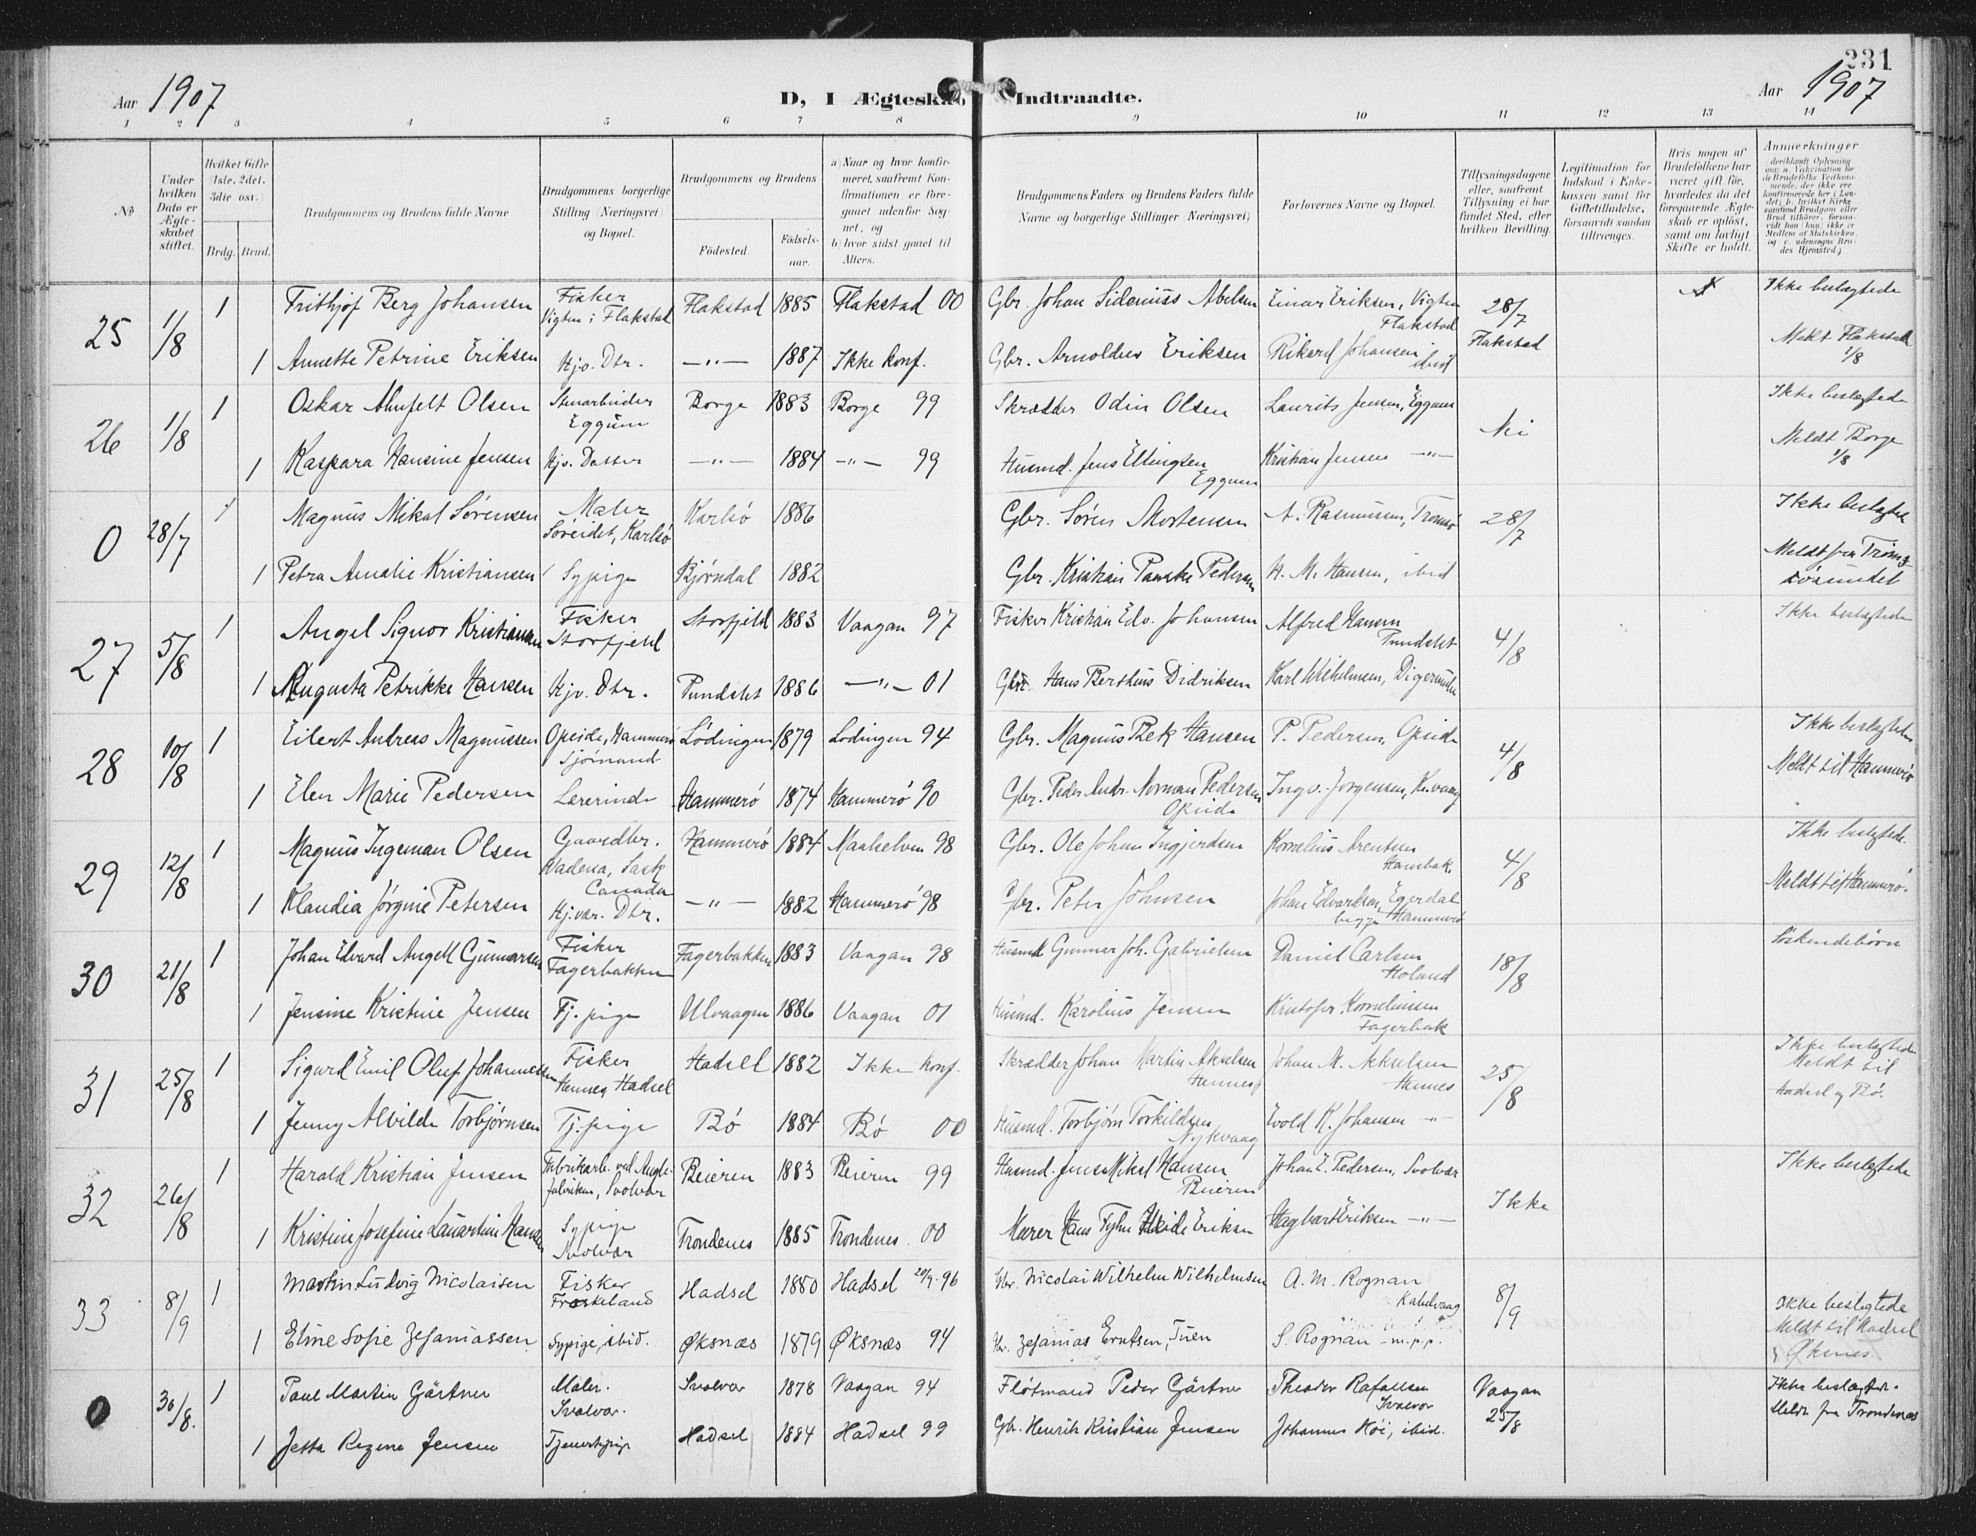 231
Aar 1907
D, I Ægteskab Indtraadte.
Aar 1907
1 2 3 4 5 6 7 8 9 10 11 12 13 14
№
Under hvilken Dato er Ægteskabet stiftet.
Hvilket Gifte (1ste, 2det, 3die osv.)
Brdg. Brud.
Brudgommens og Brudens fulde Navne
Brudgommens borgerlige Stilling (Næringsvei) og Bopæl.
Brudgommens og Brudens
Fødested.
Fødselsaar.
a) Naar og hvor konfirmeret, saafremt Konfirmationen er foregaaet udenfor Sognet, og
b) hvor sidst gaaet til Alters.
Brudgommens Faders og Brudens Faders fulde Navne og borgerlige Stillinger (Næringsvei)
Forlovernes Navne og Bopæl.
Tillysningsdagene eller, saafremt Tillysning ei har fundet Sted, efter hvilken Bevilling.
Legitimation for Indskud i Enkekassen samt for Giftetilladelse, forsaavidt saadan tiltrænges.
Hvis nogen af Brudefolkene har været gift før, hvorledes da det foregaaende Ægteskab er opløst, samt om lovligt Skifte er holdt.
Anmærkninger
25 1/8 1 Frithjof Berg Johansen Fisker Vigten i Flakstad Flakstad 1885 Flakstad 00 Gbr. Johan Sidenius Abelsen Einar Eriksen, Vigten Flakstad 28/7 Flakstad Ikke beslægtede
1 Annette Petrine Eriksen Hjv. Dtr. —"— 1887 Ikke konf. Gbr. Arnoldus Eriksen Rikard Johansen ibid Meldt Flakstad 1/8
26 1/8 1 Oskar Ahnfelt Olsen Stenarbeider Eggum Borge 1883 Borge 99 Skrædder Odin Olsen Laurits Jensen, Eggum Nei Ikke beslægtede
1 Kaspara Hansine Jensen Hjv. Datter —"— 1884 —"— 99 Husmd. Jens Ellingsen Eggum Kristian Jensen —"— Meldt Borge 1/8
0 28/7 1 Magnus Mikal Sørensen Maler Søreidet, Karlsö Karlsö 1886 Gbr. Søren Mortensen A. Rasmussen, Tromsö 28/7 Ikke beslægtede
1 Petra Amalie Kristiansen Sypige Bjørndal 1882 Gbr. Kristian Pedersen H. M. Hansen, ibid Meldt fra Tromsösundet
27 5/8 1 Angel Signor Kristiansen Fisker Storfjeld Storfjeld 1883 Vaagan 97 Fisker Kristian Edv. Johansen Alfred Hansen Pundslet 4/8 Ikke beslægtede
1 Augusta Petrikke Hansen Hjv. Dtr. Pundslet 1886 —"— 01 Gbr. Hans Berthus Didriksen Karl Wilhelmsen, Digermulen
28 10/8 1 Eilert Andreas Magnussen Opeide, Hammerö Sjømand Lødingen 1879 Lødingen 94 Gbr. Magnus Bek Hansen P. Pedersen, Opeide 4/8 Ikke beslægtede
1 Elen Marie Pedersen Lærerinde Hammerö 1874 Hammerö 90 Gbr. Peder Andr. Norman Pedersen Opeide Ingv. Jorgensen, Meldt til Hammerö
29 12/8 1 Magnus Ingeman Olsen Gaardbr. Wadena, Sask Canada Hammerö 1884 Maalselven 98 Gbr. Ole Johan Ingjerdsen Kornelius Arentsen 4/8 Ikke beslægtede.
1 Klaudia Jørgine Petersen Hj.vær. Dtr. —"— 1882 Hammerö 98 Gbr. Peter Johnsen Johan Edvardsen, Egerdal begge Hammerö Meldt til Hammerö.
30 21/8 1 Johan Edvard Angell Gunnarsen Fisker Fagerbakken Fagerbakken 1883 Vaagan 98 Husmd Gunnar Joh. Gabrielsen Daniel Carlsen Holand 18/8 Söskendebörn
1 Jensine Kristine Jensen Tj. pige Ulvaagen 1886 Vaagan 01 Husmd. Karolius Jensen Kristofer Korneliussen Fagerbak
31 25/8 1 Sigurd Emil Oluf Johannessen Fisker Hennes, Hadsel Hadsel 1882 Ikke konf. Skrædder Johan Martin Akselsen Hennes Johan M. Akselsen Hennes 25/8 Ikke beslægtede Meldt til
1 Jenny Alvilde Torbjørnsen Tj. pige Bö 1884 Bö 00 Husmd. Torbjørn Torkildsen Nykvaag Evold K. Johansen —"— Hadsel og Bö.
32 26/8 1 Harald Kristian Jensen Fabrikarb. ved fabriken, Svolvær Beieren 1883 Beieren 99 Husmd. Jens Mikal Hansen Beieren Johan E. Pedersen, Svolvær Ikke Ikke beslægtede
1 Kristine Josefine Lauartine Hansen Sypige Svolvær Trondenes 1885 Trondenes. 00 Murer Hans Eriksen Hagbart Eriksen —"—
33 8/9 1 Martin Ludvig Nicolaisen Fisker Froskeland Hadsel 1880 Hadsel 20/9. 96 Gbr. Nicolai Wilhelm Wilhelmsen A. M. Rognan Kabelvaag 8/9 Ikke beslegtede
1 Eline Sofie Zefaniassen Sypige, ibid. Øksnæs 1879 Øksnæs 94 Zefanias Erntsen, Tuen S. Rognan m.p.p. Meldt til Hadsel & Øksnes
0 30/8. 1 Paul Martin Gärtner Maler. Svolvær. Svolvær 1878 Vaagan 94 Fløtmand Peder Gärtner Theodor Rafaelsen Svolvær Vaagan Ikke beslægtede.
1 Jetta Regine Jensen Tjenestepige Hadsel 1884 Hadsel 99 Gb. Henrik Kristian Jensen Johannes Høi, ibid. 25/8 Meldt fra Trondenes